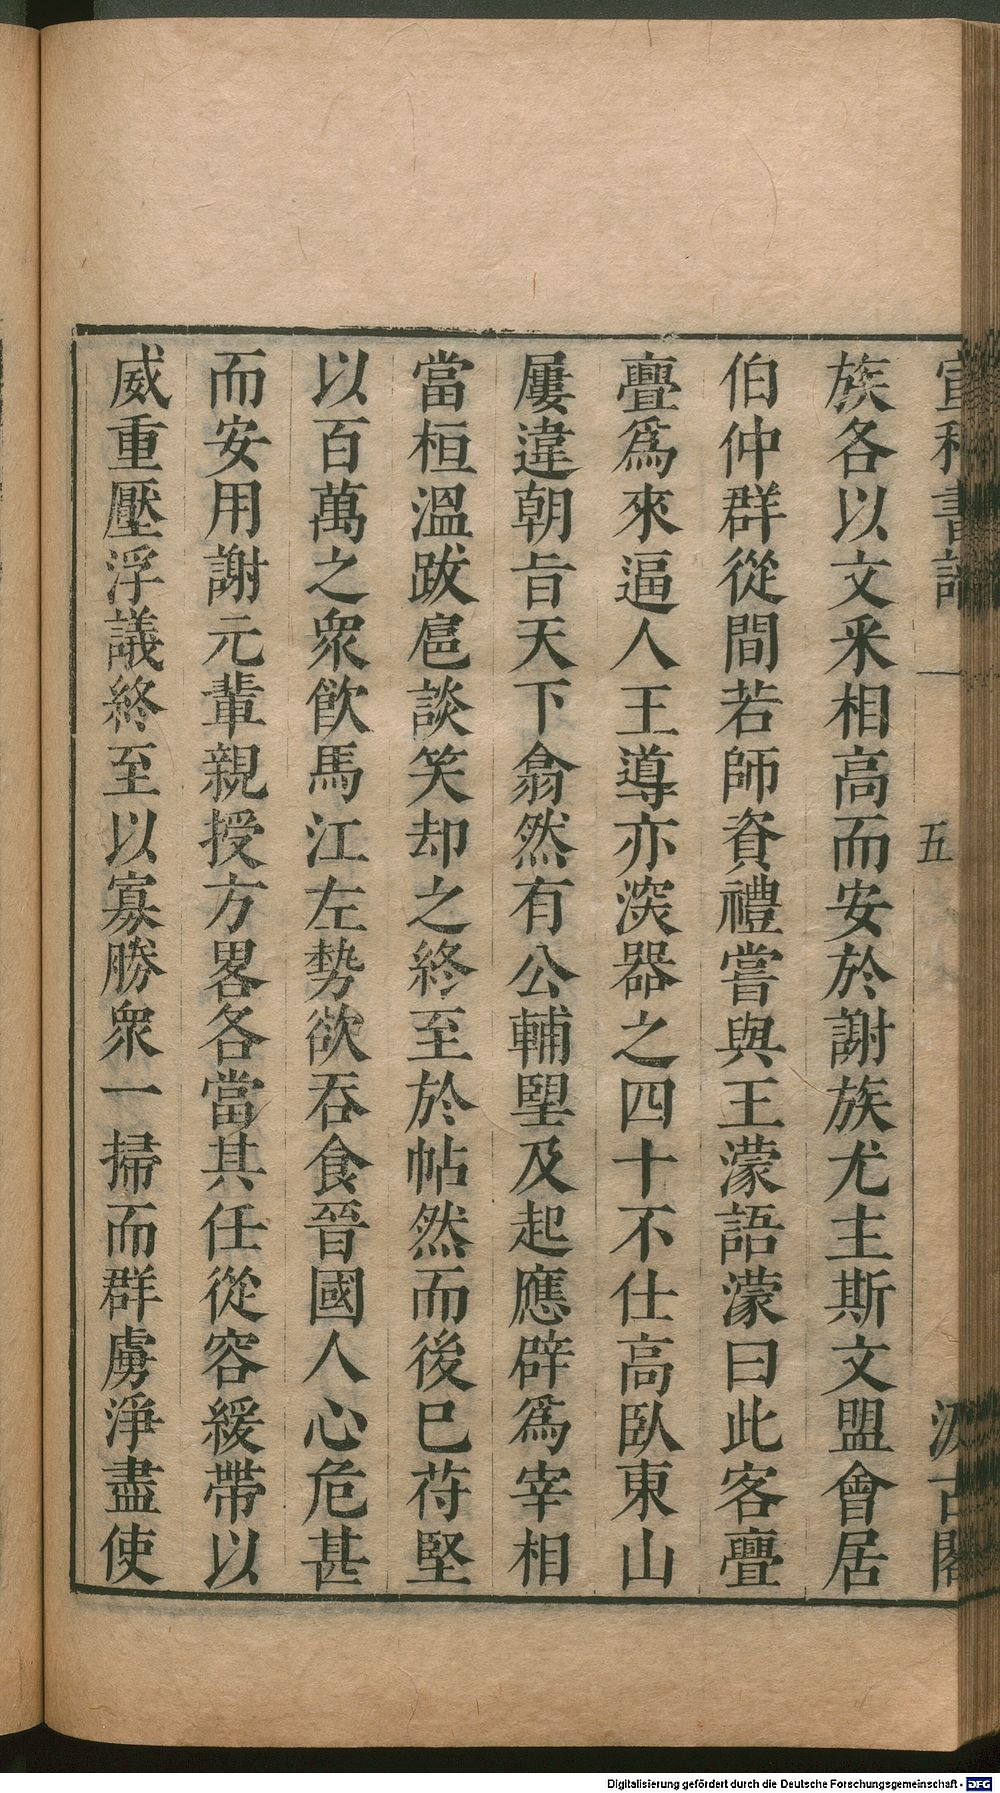 宣和書譜 一 五 汲古閣
族各以文釆相高而安於謝族尤主斯文盟會居
伯仲群從間若師資禮嘗與王濛語濛曰此客亹
亹爲來逼人王導亦深器之四十不仕高臥東山
屢違朝旨天下翕然有公輔朢及起應辟爲宰相
當桓溫跋扈談笑却之終至於帖然而後巳苻堅
以百萬之衆飲馬江左勢欲吞食晉國人心危甚
而安用謝元輩親授方畧各當其任從容緩帶以
威重壓浮議終至以寡勝衆一掃而群虜淨盡使
Digitalisierung gefördert durch die Deutsche Forschungsgemeinschaft - DFG